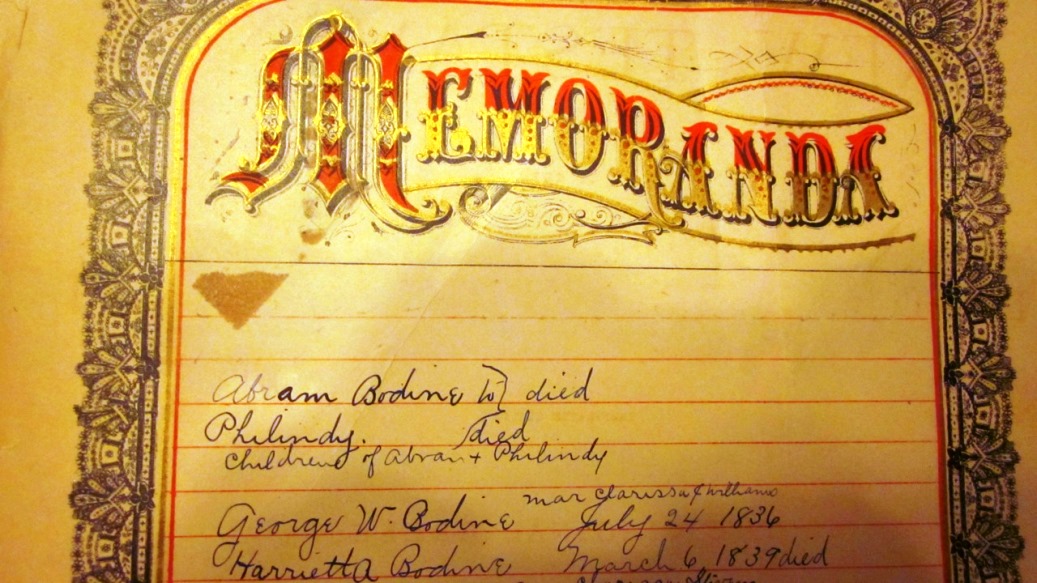 MEMORANDA
Abram Bodine to died
Philindy. died
Children of Abram + Philindy
mar Clarissa J Williams
George W. Bodine July 24 1836
Harrietta Bodine March 6 1839 died